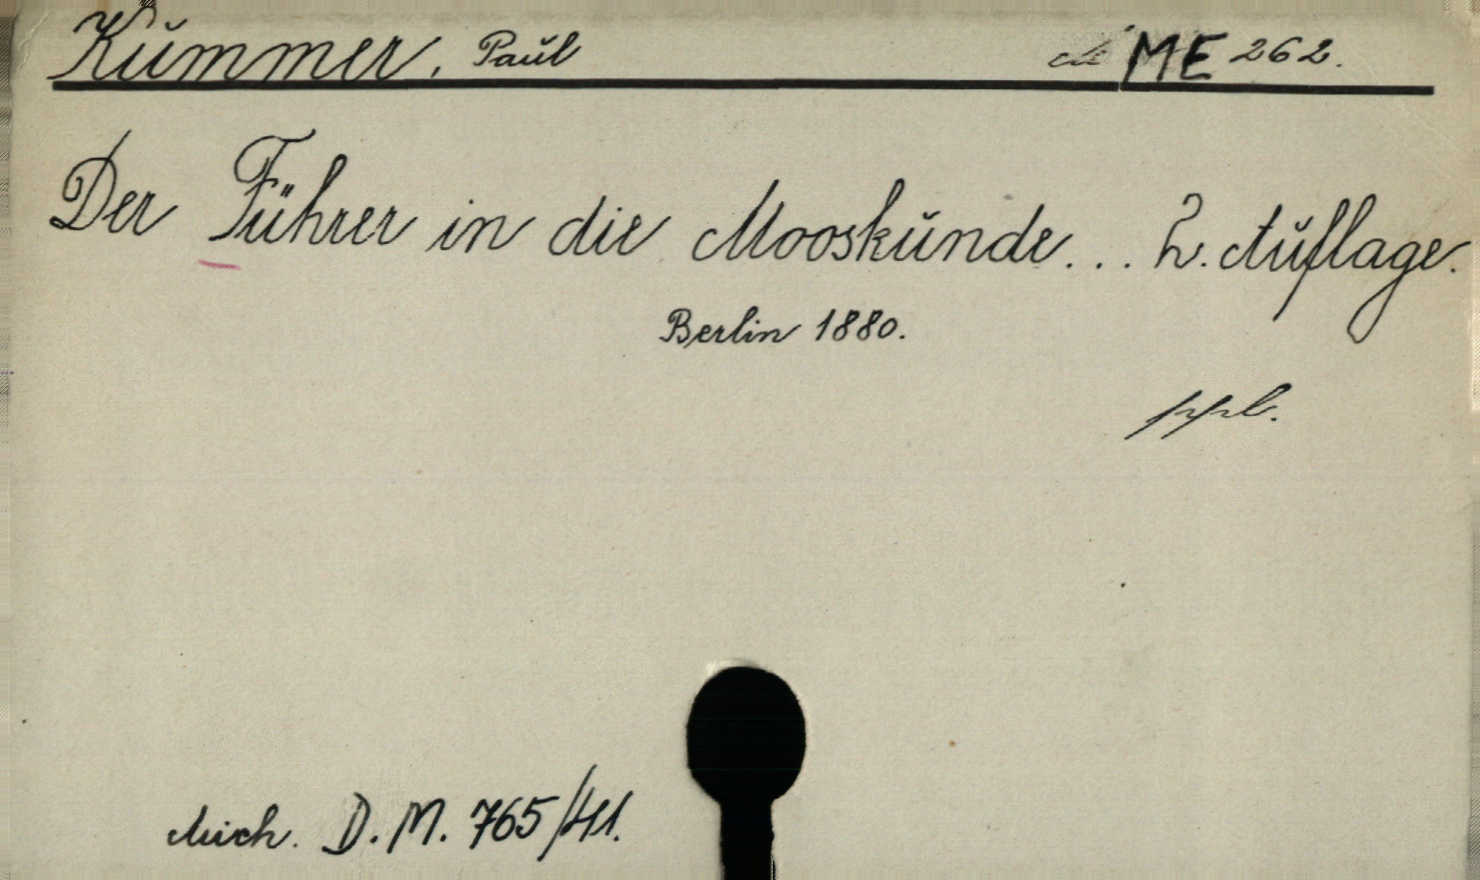 Kummer, Paul ME 262.
Der Führer in die Mooskunde... 2. Auflage.
Berlin 1880.
ppb.
D. M. 765/41.